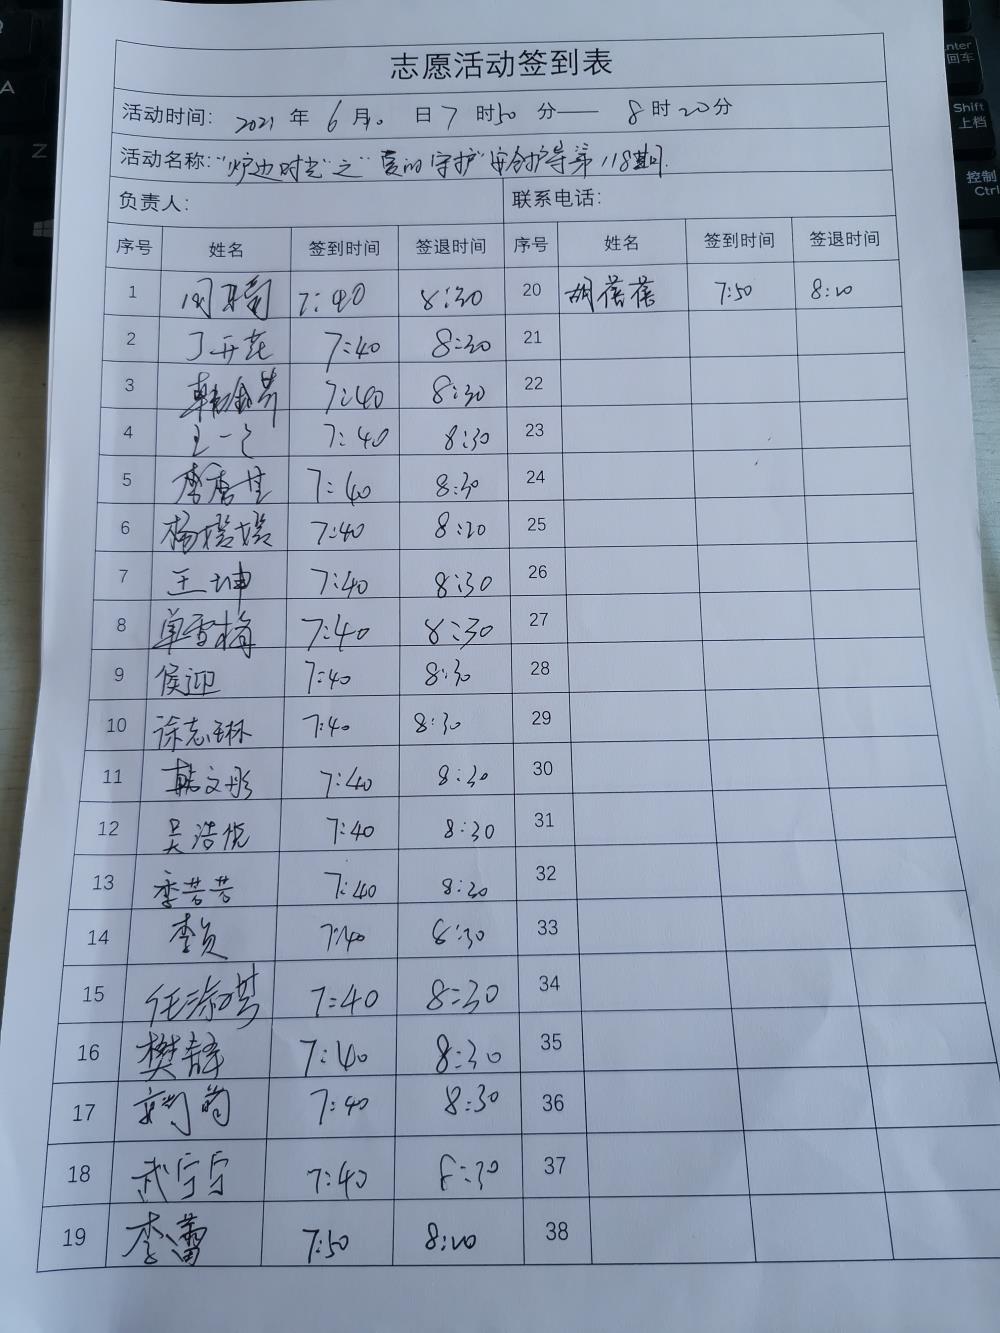 志愿活动签到表
活动时间: 2021 年 6月10 日 7 时50 分—— 8 时20分
活动名称:"炉边时光"之"爱的守护"安全护导第118期
负责人: 联系电话:
序号 姓名 签到时间 签退时间 序号 姓名 签到时间 签退时间
1 7:40 8:30 20 胡蓓蓓 7:50 8:20
2 丁开花 7:40 8:30 21
3 7:40 8:30 22
4 王一 7:40 8:30 23
5 李 7:40 8:30 24
6 杨婷婷 7:40 8:20 25
7 王坤 7:40 8:30 26
8 单雪梅 7:40 8:30 27
9 侯迎 7:40 8:30 28
10 徐志琳 7:40 8:30 29
11 韩文彤 7:40 8:30 30
12 吴浩悦 7:40 8:30 31
13 李芸芸 7:40 8:30 32
14 李贞 7:40 8:30 33
15 任淑琪 7:40 8:30 34
16 樊静 7:40 8:30 35
17 7:40 8:30 36
18 武宁宁 7:40 8:30 37
19 李蕾 7:50 8:20 38
A
Z
Enter
回车
Shift
上档
控制
Ctrl